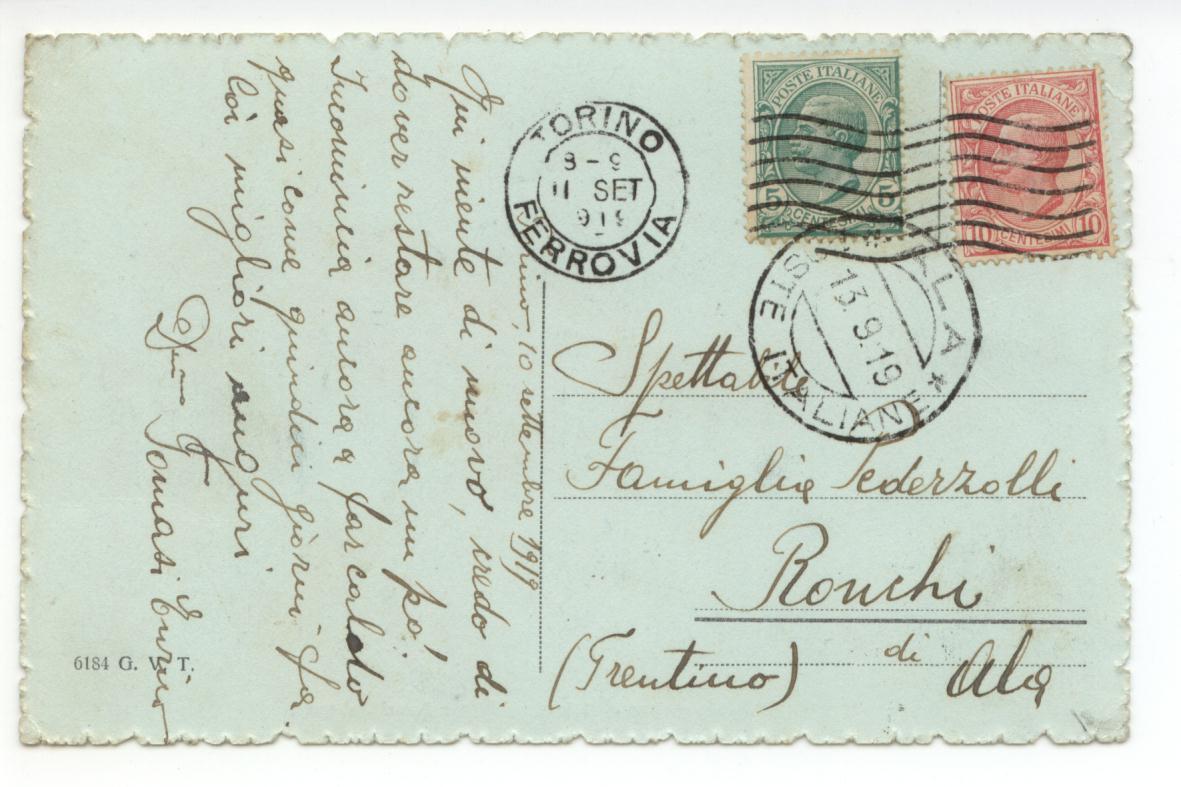 POSTE ITALIANE
5 CENTESIMI 5
POSTE ITALIANE
10 CENTESIMI 10
TORINO
8-9
11 SET
1919
FERROVIA
ALA
13.9.19
POSTE ITALIANE
*
Torino, 10 settembre 1919
Qui niente di nuovo, credo di
dover restare ancora un po'.
Incomincia ancora a far caldo
quasi come quindici giorni fa.
Coi migliori auguri
Tomasi Enrico
Spettabile
Famiglia Pederzolli
Ronchi
di Ala
(Trentino)
6184 G. V. T.